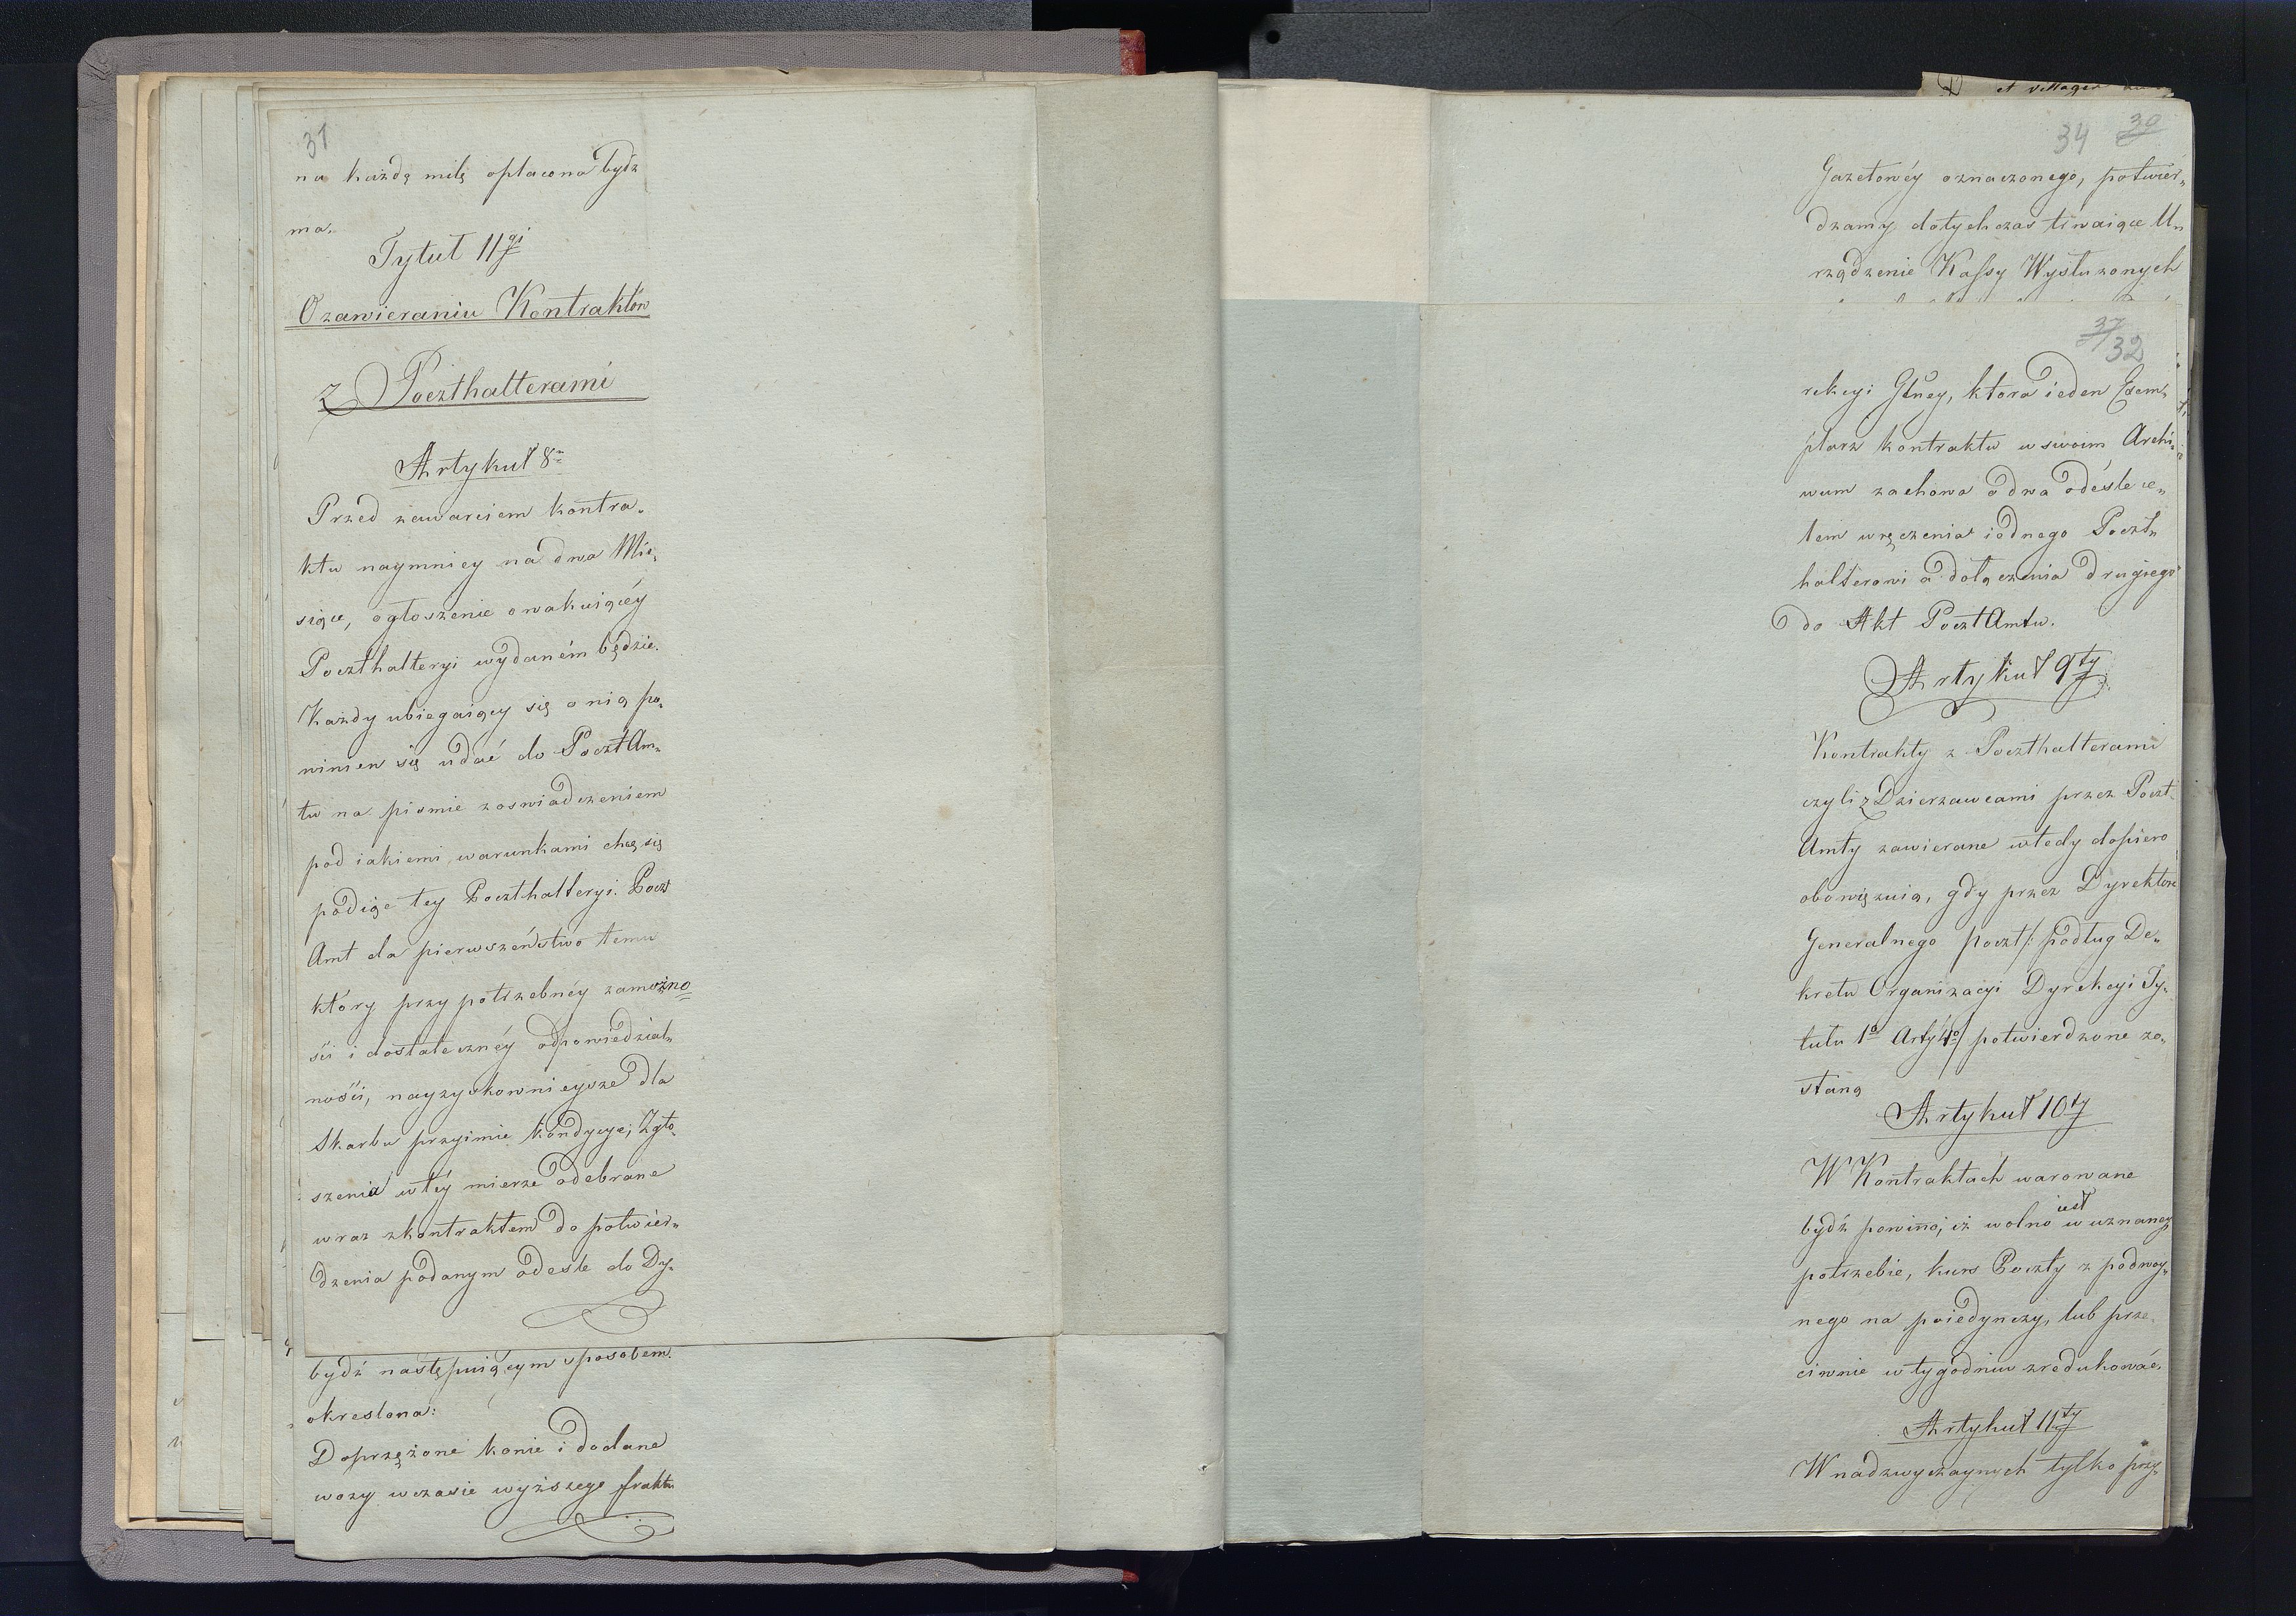 31
na każdą milę opłacona bydź
ma.
Tytuł 11gi
O zawieraniu Kontraktów
z Poczthalterami
Artykuł 8my
Przed zawarciem kontra„
ktu naymniey na dwa Mie„
siące, ogłoszenie o wakuiącéy
Poczthalteryi wydaném będzie.
Każdy ubiegaiący się o nią po„
winien się udać do PocztAm„
tu na pismie z oswiadczeniem
pod iakiemi warunkami chce się
podiąć tey Poczthalteryi. Poczt
Amt da pierwszeństwo temu
który przy potrzebnéy zamożno=
ści i dostatecznéy odpowiedzial„
ności, nayzyskownieysze dla
Skarbu przyimie kondycye; Zgło„
szenia w téy mierze odebrane
wraz z kontraktem do potwier„
dzenia podanym odesle do Dy„
bydź następuiącym sposobem.
okreslona:
Doprzężone konie i dodane
wozy w czasie wyższego fraktu
et villages
34 30
Gazetowéy oznaczonego, potwier„
dzamy dotychczas trwaiące U„
rządzenie Kassy Wysłużonych
37
32
rekcyi Głney, ktora ieden Exem„
plarz kontraktu w swoim Archi„
wum zachowa a dwa odésle ce„
lem wręczenia iednego Poczt„
halterowi a dołączenia drugiego
do Akt PocztAmtu.
Artykuł 9ty
Kontrakty z Poczthalterami
czyli z Dzierzawcami przez Poczt
Amty zawierane wtedy dopiero
obowięzuią, gdy przez Dyrektora
Generalnego poczt /: podług De„
kretu Organizacyi Dyrekcyi Ty„
tułu 1o Arty 4o :/ potwierdzone zo„
staną
Artykuł 10ty
W Kontraktach warowane
bydź powinno, iż wolno iest w uznaney
potrzebie, kurs Poczty z podwoy„
nego na poiedynczy, lub prze„
ciwnie w tygodniu zredukować.
Artykuł 11ty
W nadzwyczaynych tylko przy„